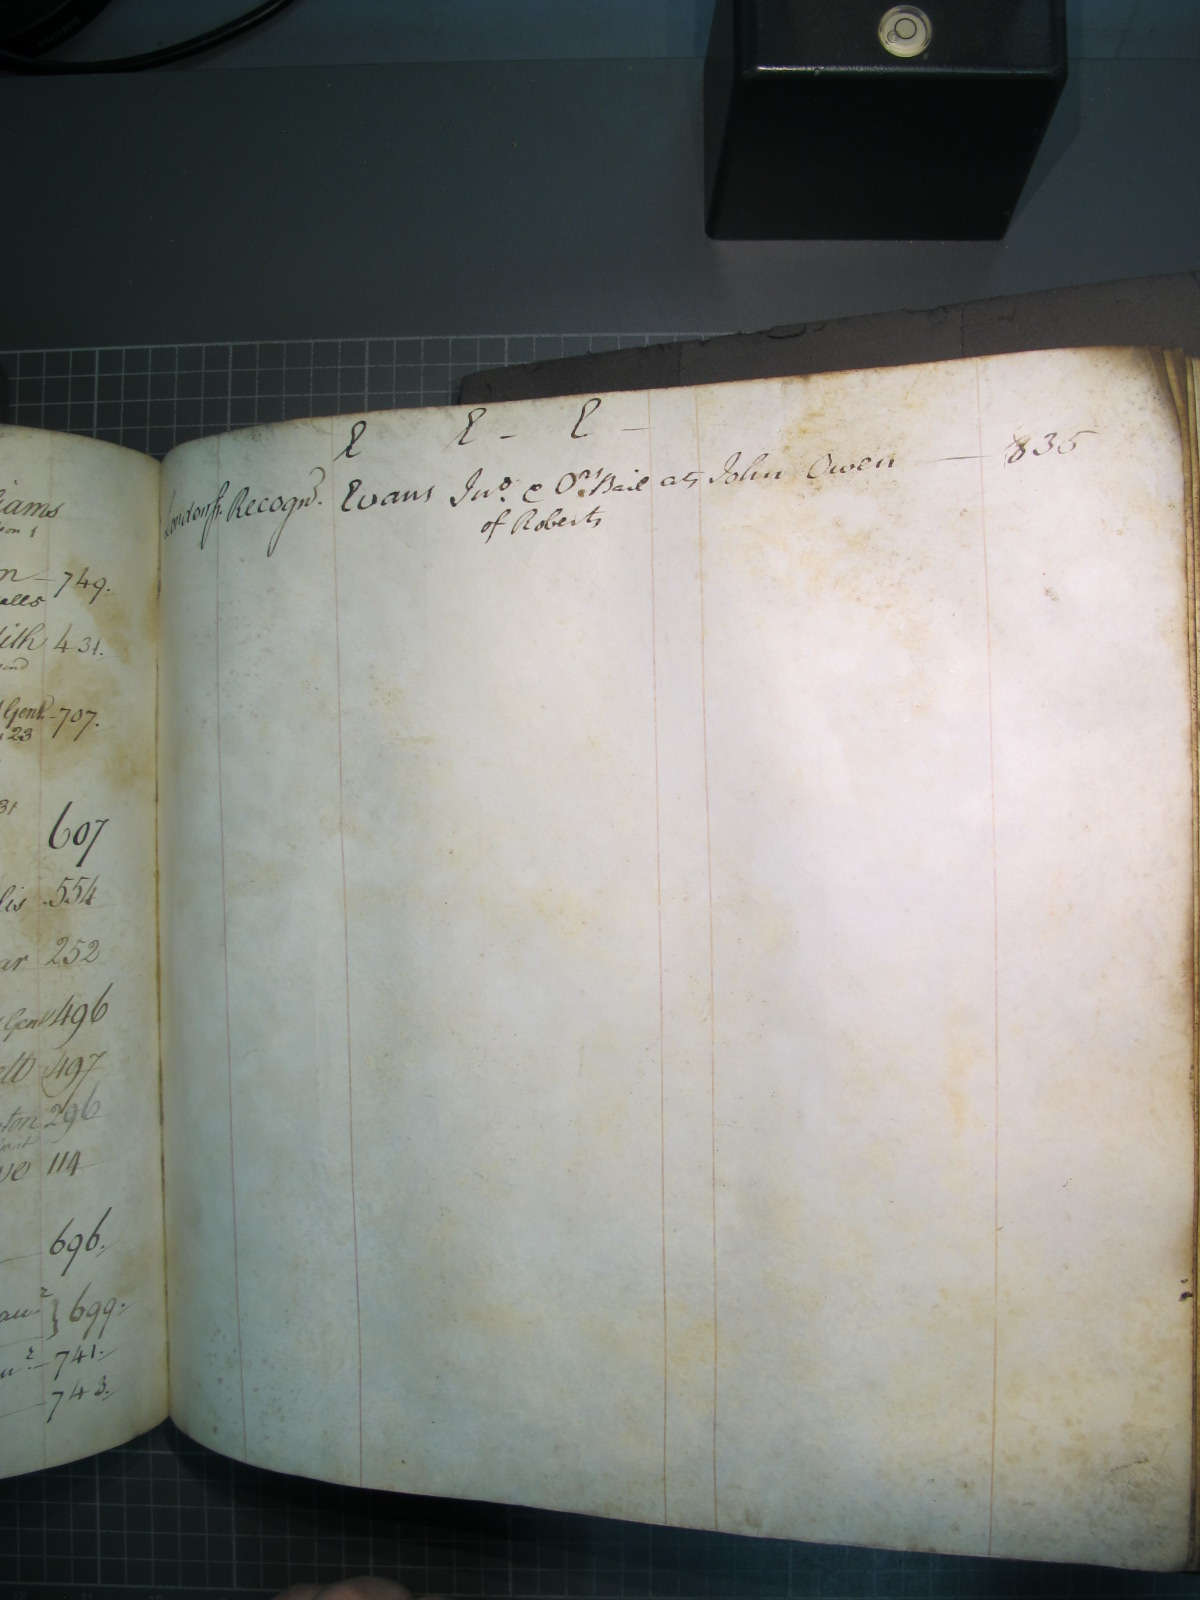 iams
on 1
n — 749.
alls
ith 431.
Gent. 707.
23
31
607
lis 554
ar 252
Gent 496
ett 497
ton 296
ve 114
696.
au.r } 699.
u.r 741.
743.
E E - E -
London ss. Recogn.d Evans Jno. & Ors Bail ats John Owen — 835
of Roberts